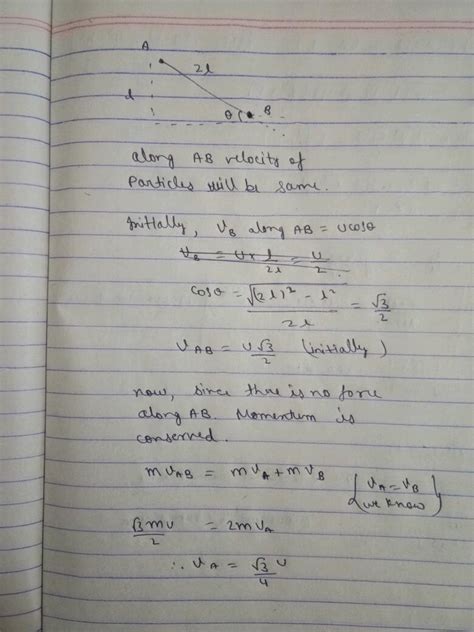 A
2l
l
θ
B
along AB velocity of
Particles will be same.
Initially, VB along AB = ucosθ
VB = u × l/2l = u/2
cosθ = √((2l)² - l²)/2l = √3/2
VAB = u√3/2 (initially)
now, since there is no force
along AB. Momentum is
conserved.
mVAB = mVA + mVB {VA = VB
we know}
√3mu/2 = 2mVA
∴ VA = √3/4 u